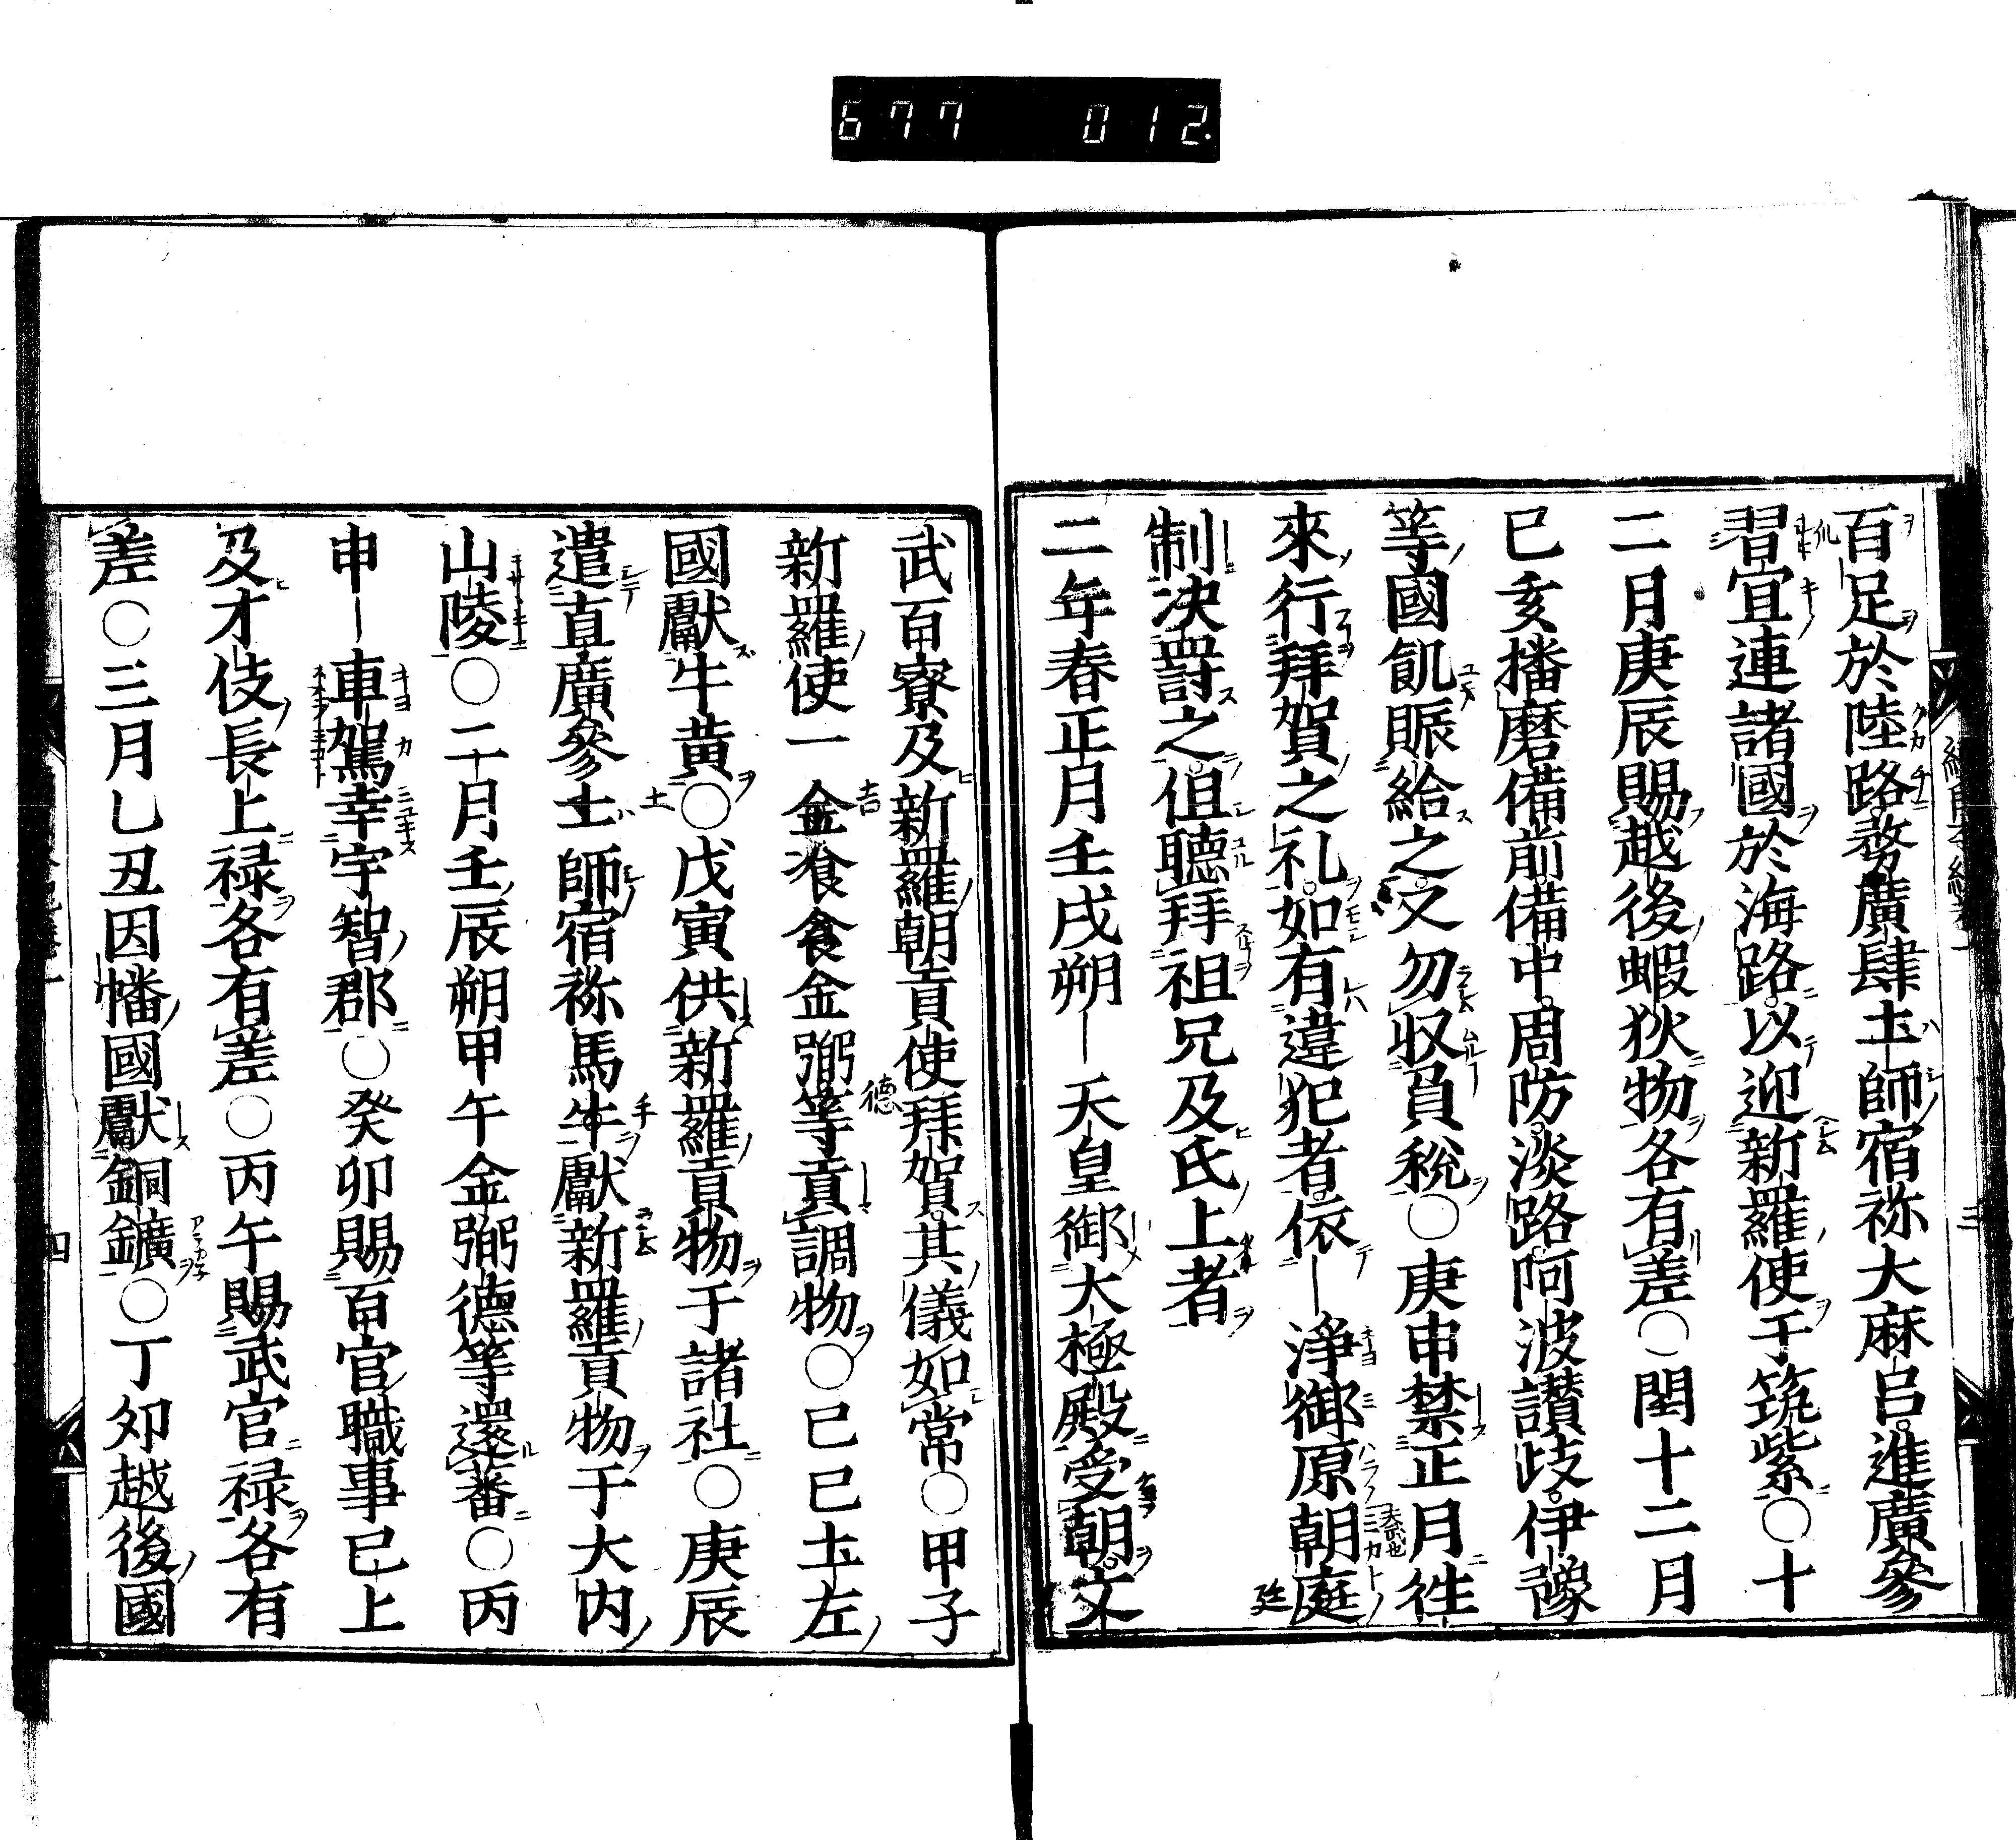 677 012.
百足於陸路務廣肆土師宿祢大麻呂進廣參
習宜連諸國於海路以迎新羅使于筑紫○十
二月庚辰賜越後蝦狄物各有差○閏十二月
已亥播磨備前備中周防淡路阿波讃岐伊豫
等國飢賑給之又勿収負稅○庚申禁正月徃
來行拜賀之礼如有違犯者依淨御原朝庭
制决罸之伹聽拜祖兄及氏上者
二年春正月壬戌朔天皇御大極殿受朝文
武百寮及新羅朝貢使拜賀其儀如常○甲子
新羅使一金飡食金弼等貢調物○已巳土左
國獻牛黄○戊寅供新羅貢物于諸社○庚辰
遣直廣參士師宿祢馬牛獻新羅貢物于大内
山陵○二十月壬辰朔甲午金弼德等還蕃○丙
申車駕幸宇智郡○癸卯賜百官職事已上
及才伎長上禄各有差○丙午賜武官禄各有
差○三月乙丑因幡國獻銅鑛○丁夘越後國
三
四